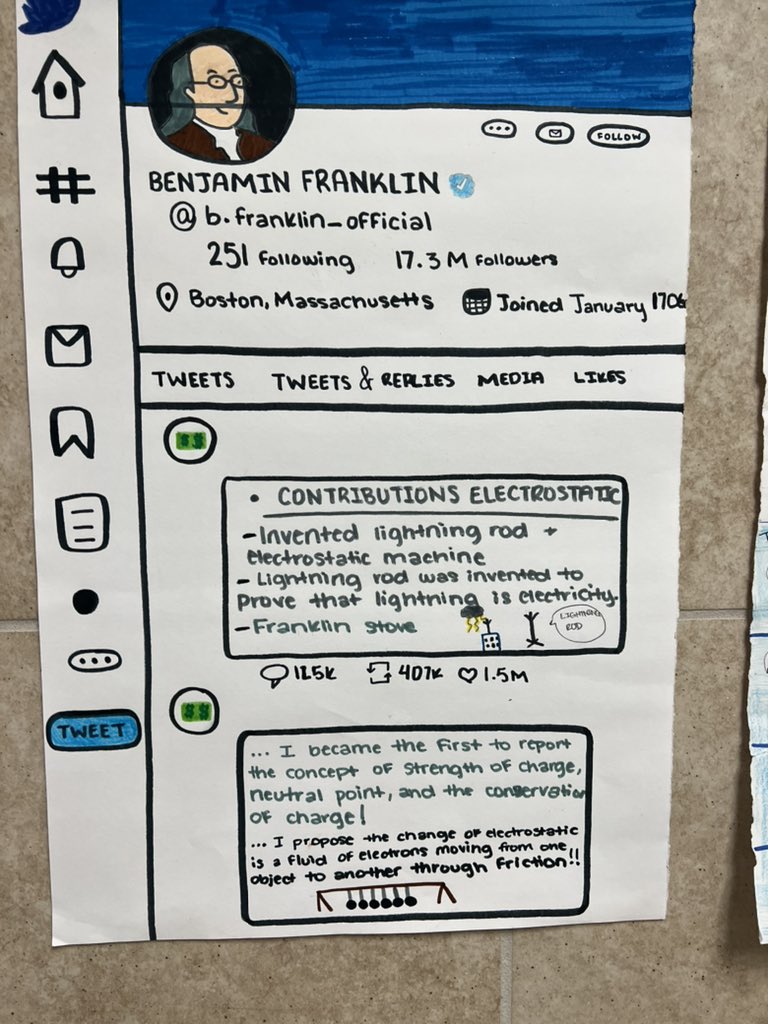 FOLLOW
BENJAMIN FRANKLIN
@ b.franklin_official
251 Following 17.3 M Followers
Boston, Massachusetts Joined January 1706
TWEETS TWEETS & REPLIES MEDIA LIKES
$$
• CONTRIBUTIONS ELECTROSTATIC
-Invented lightning rod +
electrostatic machine
- Lightning rod was invented to
prove that lightning is electricity.
-Franklin stove
LIGHTNING
ROD
407K 1.5M
TWEET
$$
... I became the first to report
the concept of strength of charge,
neutral point, and the conservation
of charge!
... I propose the change of electrostatic
is a fluid of electrons moving from one
object to another through friction!!